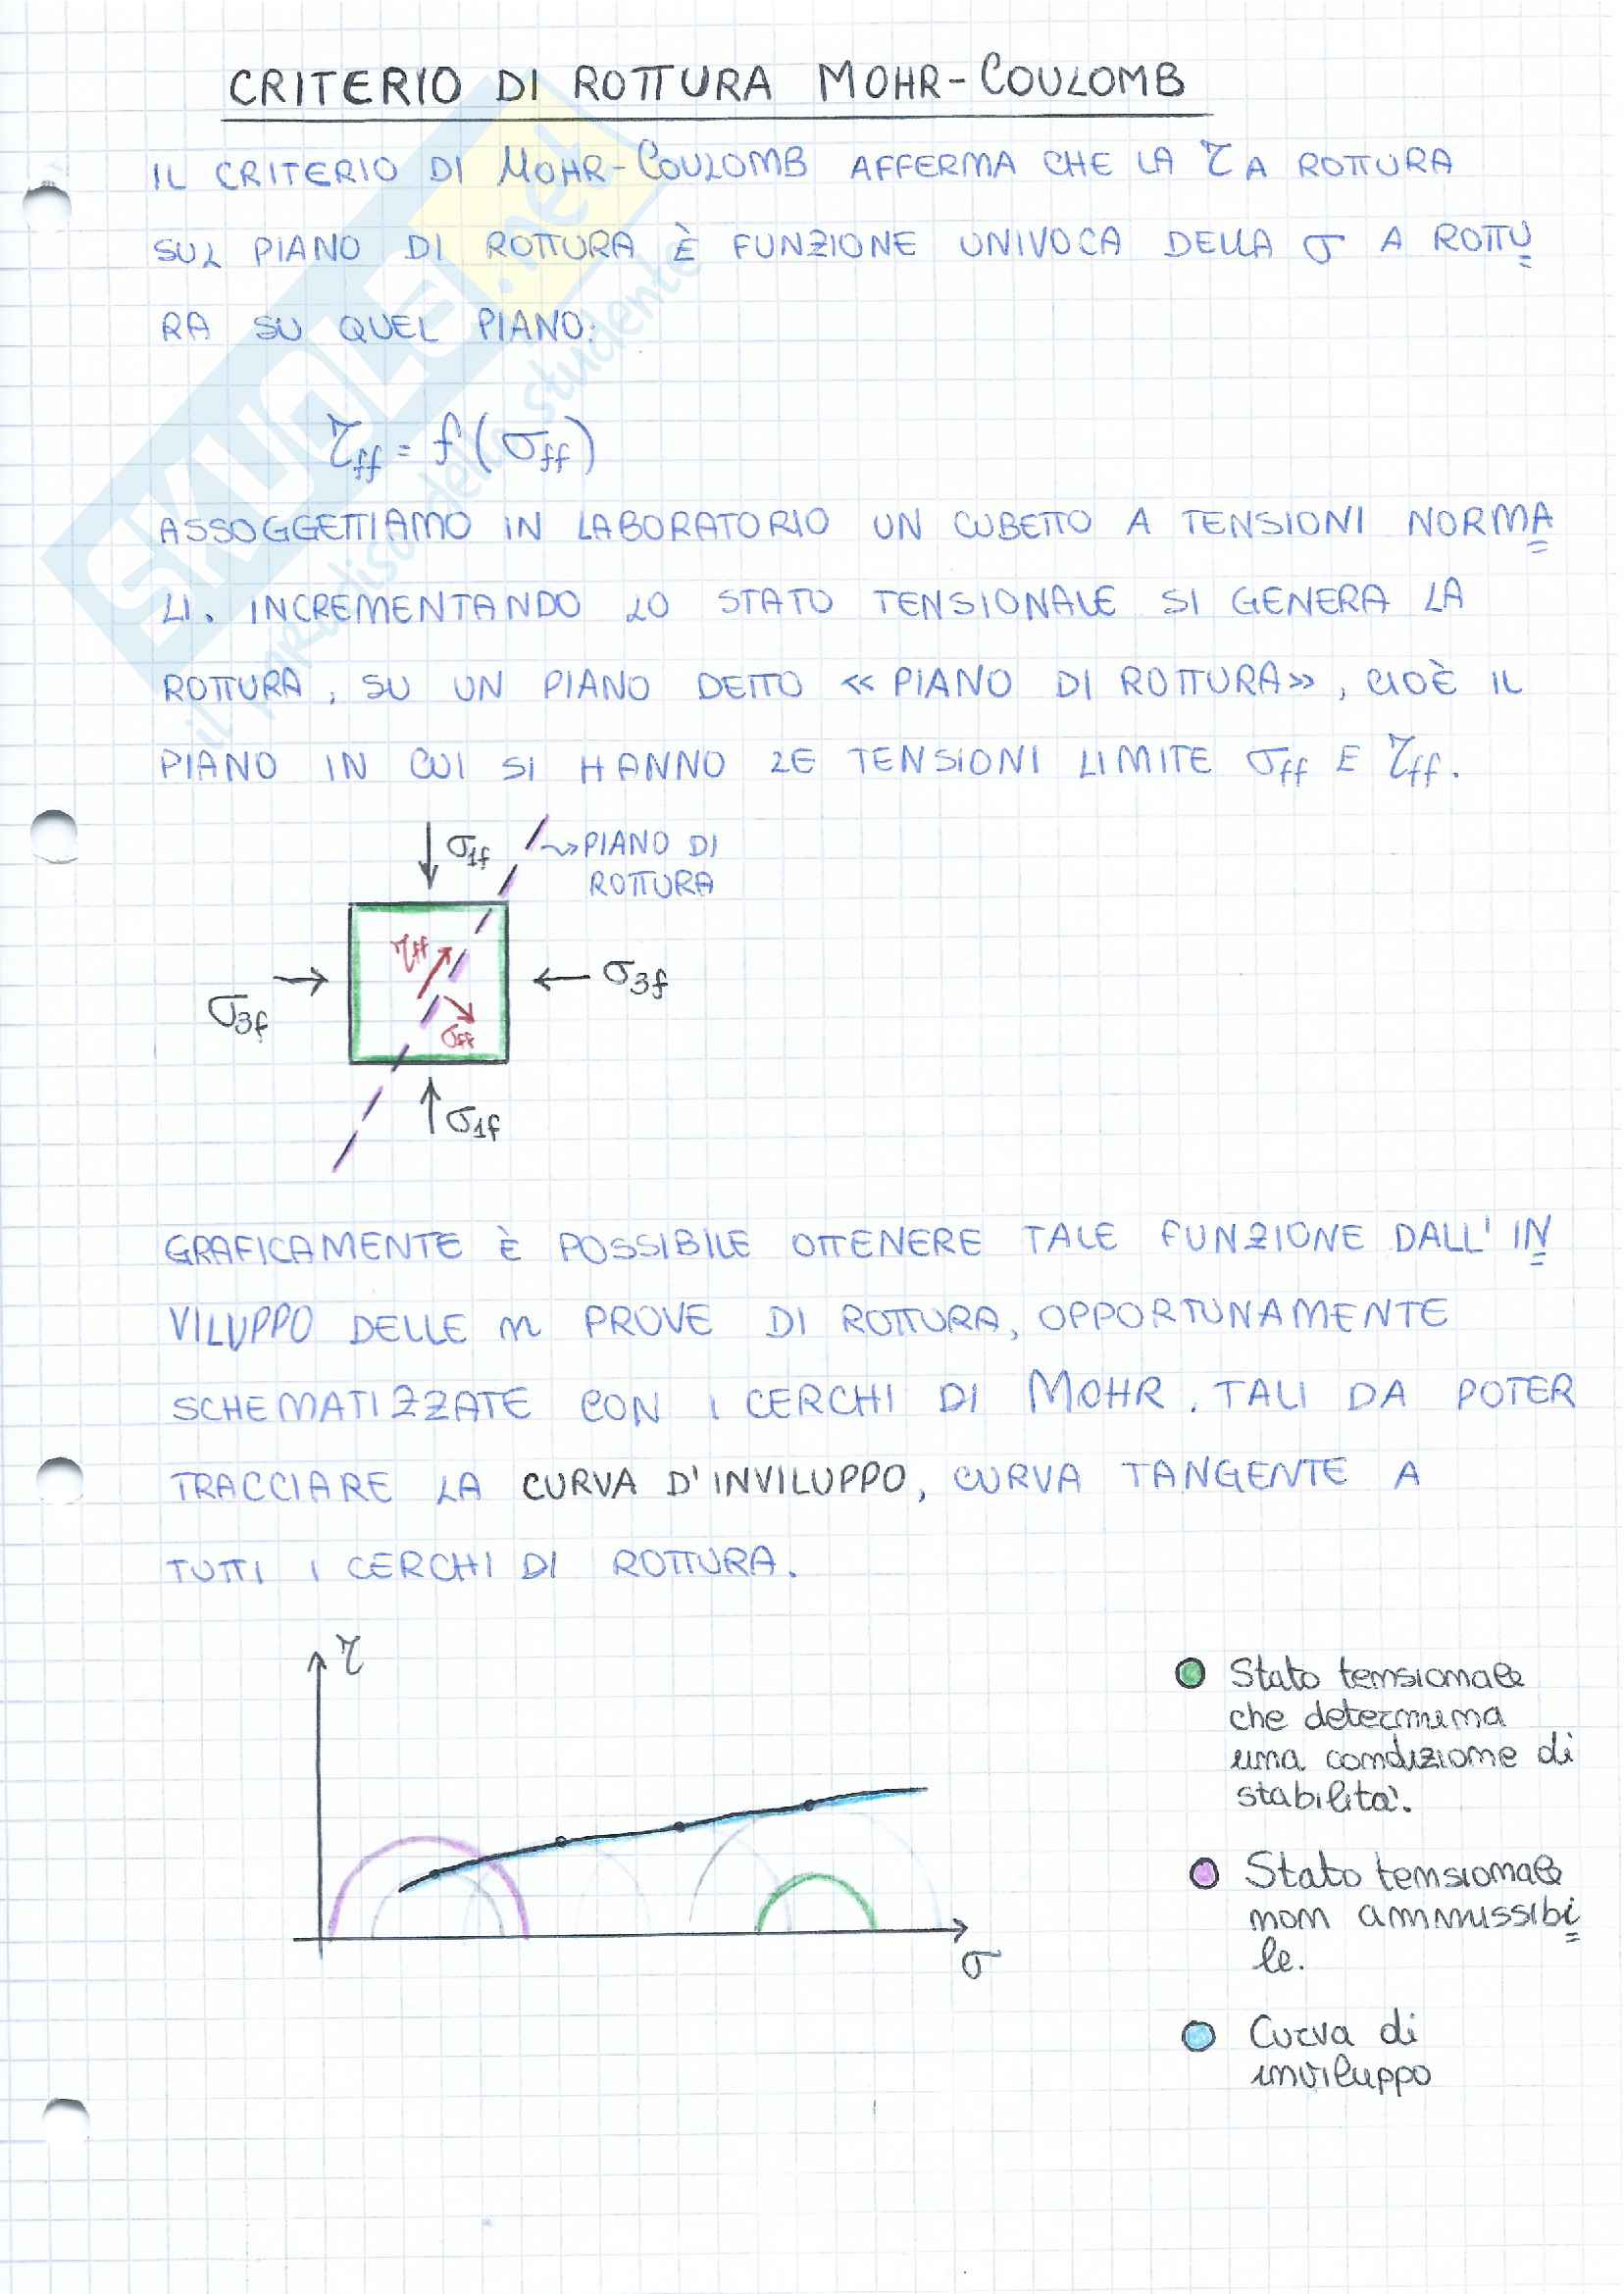 CRITERIO DI ROTTURA MOHR-COULOMB
IL CRITERIO DI MOHR-COULOMB AFFERMA CHE LA τ A ROTTURA
SUL PIANO DI ROTTURA È FUNZIONE UNIVOCA DELLA σ A ROTTU
RA SU QUEL PIANO:
τff = f(σff)
ASSOGGETTIAMO IN LABORATORIO UN CUBETTO A TENSIONI NORMA
LI. INCREMENTANDO LO STATO TENSIONALE SI GENERA LA
ROTTURA, SU UN PIANO DETTO « PIANO DI ROTTURA», CIOÈ IL
PIANO IN CUI SI HANNO LE TENSIONI LIMITE σff E τff.
σ1f
PIANO DI
ROTTURA
τff
σ3f
σ3f
σff
σ1f
GRAFICAMENTE È POSSIBILE OTTENERE TALE FUNZIONE DALL'IN
VILUPPO DELLE n PROVE DI ROTTURA, OPPORTUNAMENTE
SCHEMATIZZATE CON I CERCHI DI MOHR. TALI DA POTER
TRACCIARE LA CURVA D'INVILUPPO, CURVA TANGENTE A
TUTTI I CERCHI DI ROTTURA.
τ
σ
Stato tensionale
che determina
una condizione di
stabilità.
Stato tensionale
non ammissibi
le.
Curva di
inviluppo
SKUOLA.net
il paradiso dello studente